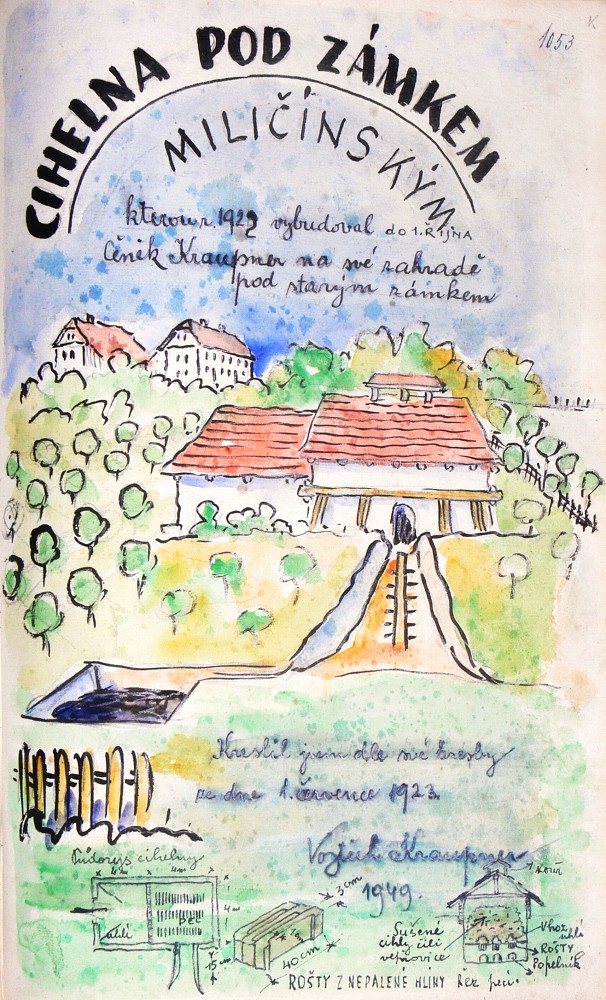 1053
K
CIHELNA POD ZÁMKEM
MILIČÍNSKÝM
kterou r. 1922 vybudoval do 1. ŘÍJNA
Čeněk Kraupner na své zahradě
pod starým zámkem
Kreslil jsem dle své kresby
ze dne 1. července 1923
Vojtěch Kraupner
1949.
Půdorys cihelny
4m 4m
PEC
4m
uhlí
15 cm
3cm
40cm
kouř
Sušené
cihly čili
vepřovice
Vhoz
uhlí
ROŠTY
Popelník
ROŠTY Z NEPÁLENÉ HLÍNY Řez pecí.